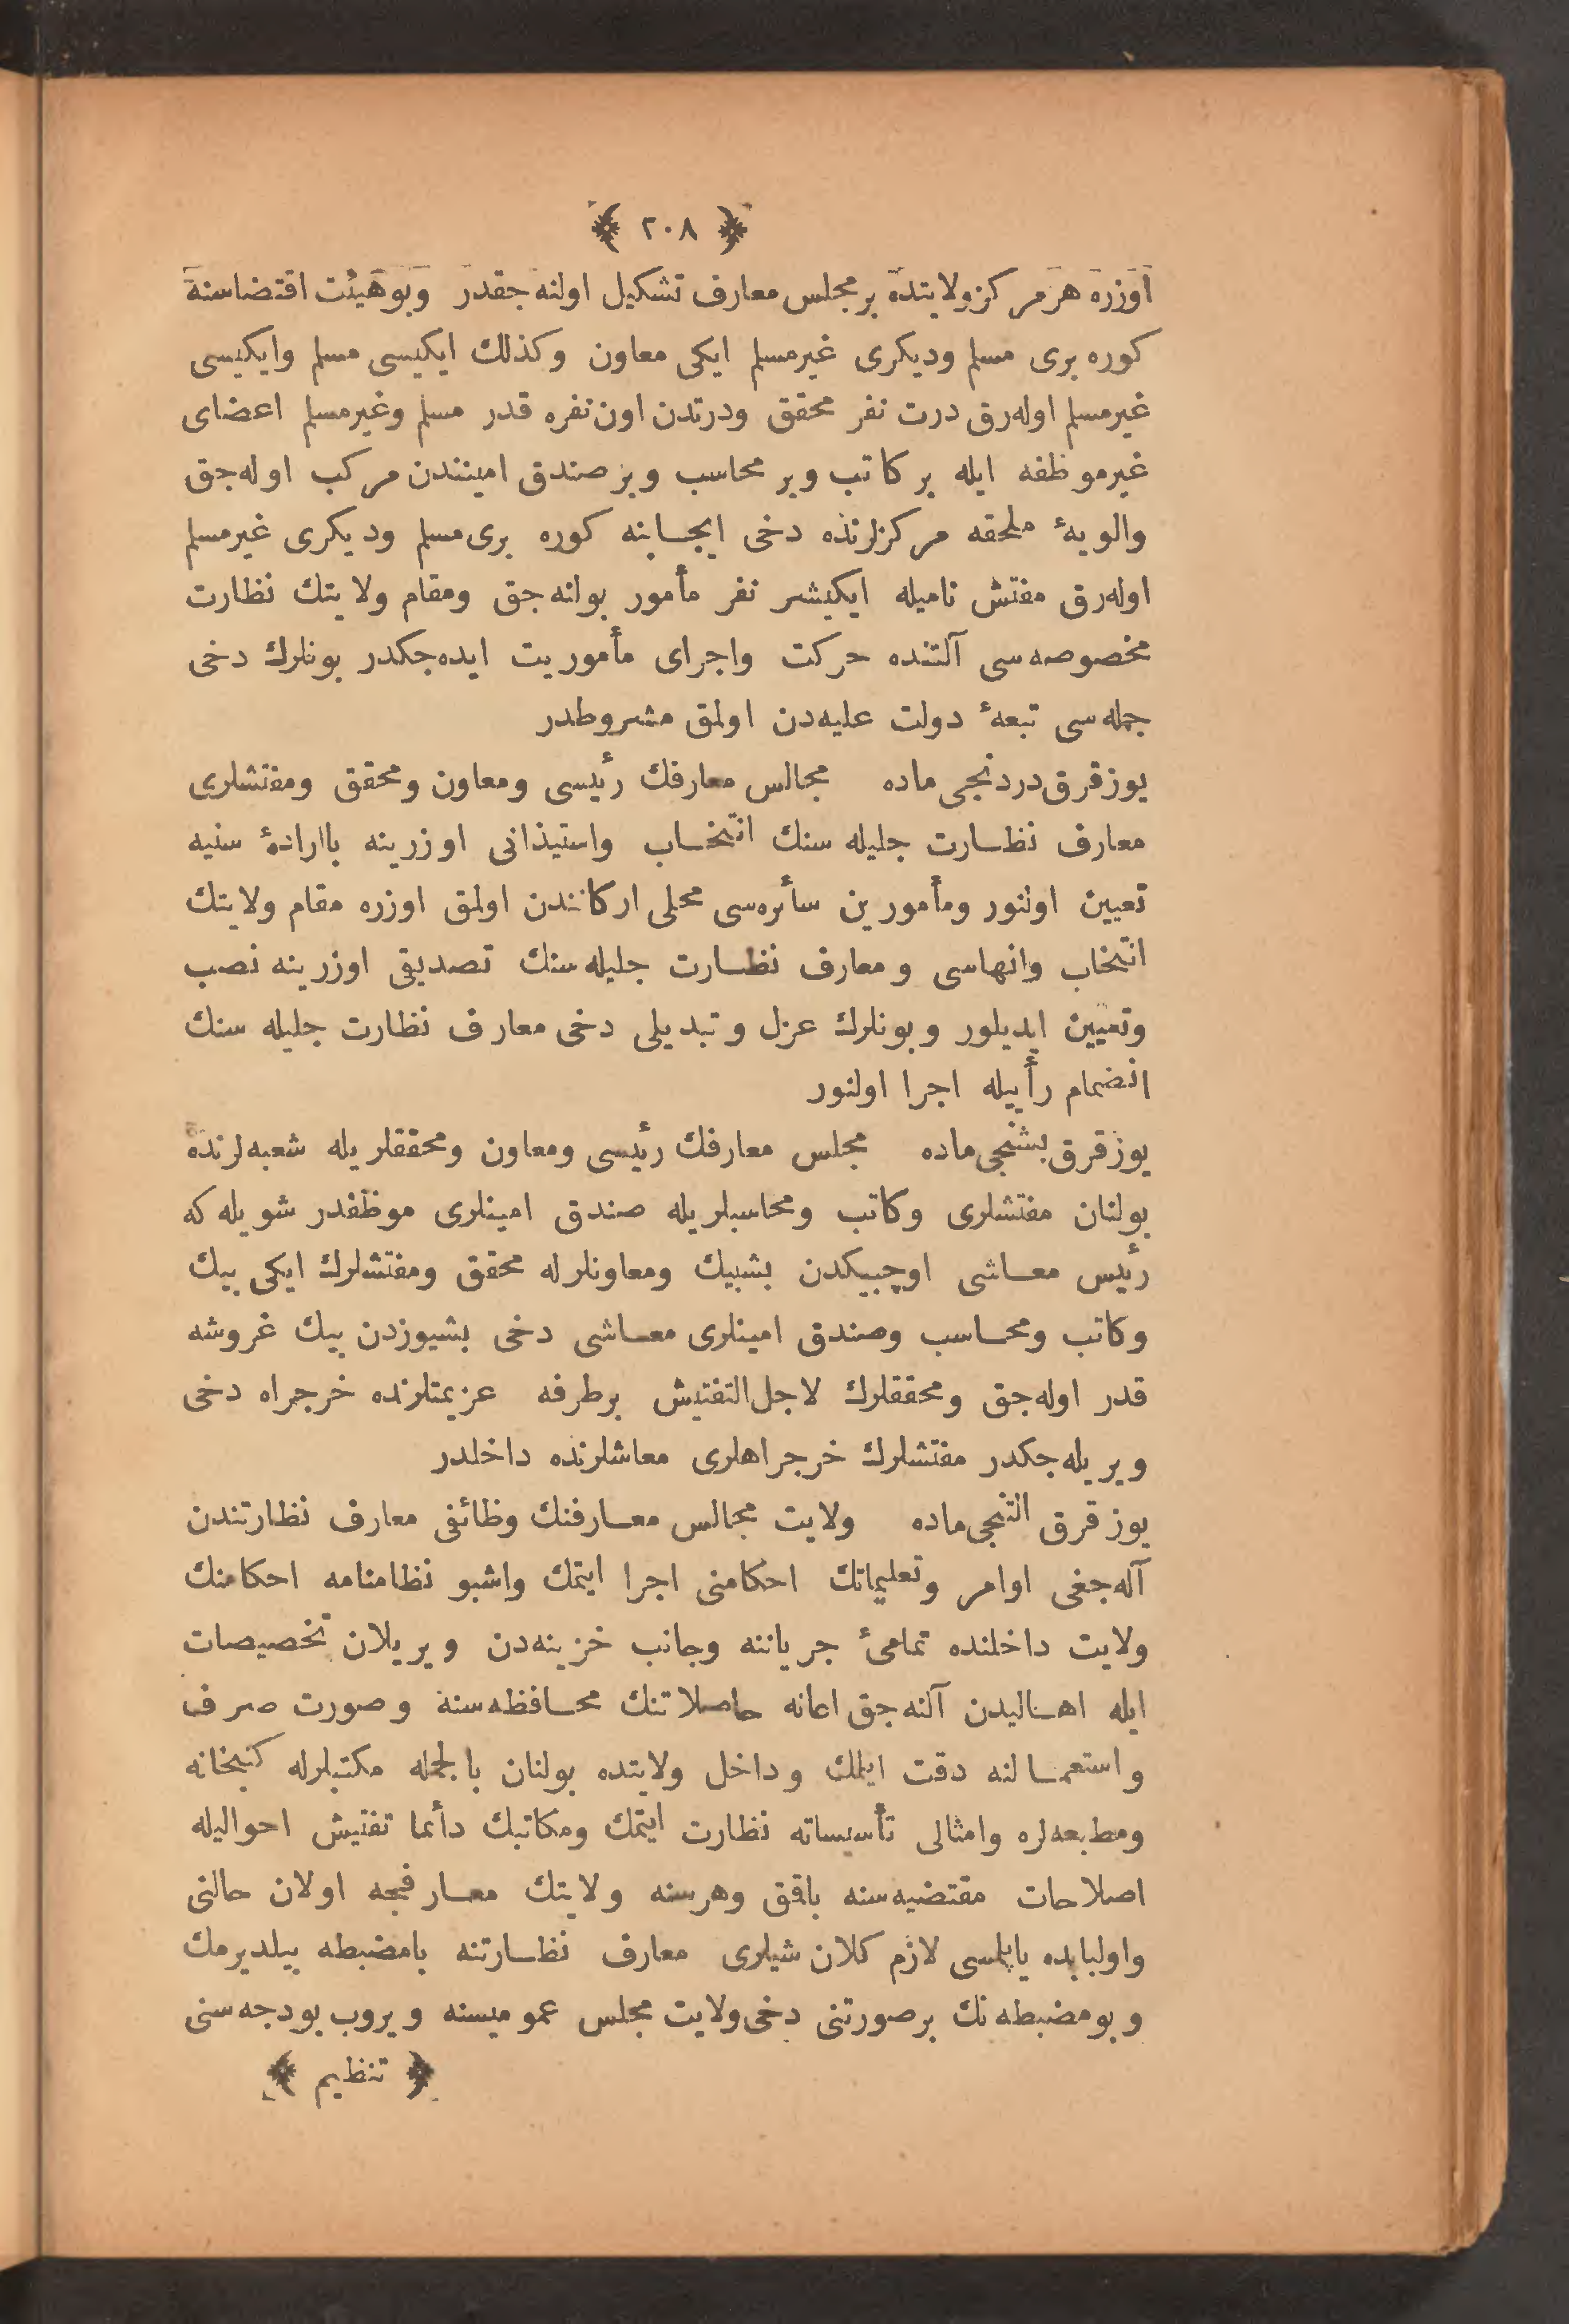 ﴿ ٢٠٨ ﴾
اوزره هر مركز ولايتده بر مجلس معارف تشكيل اولنه جقدر وبوهيئت اقتضاسنه
كوره برى مسلم وديكرى غيرمسلم ايكى معاون وكذلك ايكيسى مسلم وايكيسى
غيرمسلم اوله‌رق درت نفر محقق ودرتدن اون نفره قدر مسلم وغيرمسلم اعضاى
غيرموظفه ايله بر كاتب وبر محاسب وبر صندق امينندن مركب اوله‌جق
والويهٔ ملحقه مركزلرنده دخى ايجابنه كوره برى مسلم وديكرى غيرمسلم
اوله‌رق مفتش ناميله ايكيشر نفر مأمور بولنه‌جق ومقام ولايتك نظارت
مخصوصه‌سى آلتنده حركت واجراى مأموريت ايده‌جكدر بونلرك دخى
جمله‌سى تبعهٔ دولت عليه‌دن اولمق مشروطدر
يوزقرق‌دردنجى ماده مجالس معارفك رئيسى ومعاون ومحقق ومفتشلرى
معارف نظارت جليله سنك انتخاب واستيذانى اوزرينه باارادهٔ سنيه
تعيين اولنور ومأمورين سائره‌سى محلى اركانندن اولمق اوزره مقام ولايتك
انتخاب وانهاسى ومعارف نظارت جليله‌سنك تصديقى اوزرينه نصب
وتعيين ايديلور وبونلرك عزل وتبديلى دخى معارف نظارت جليله سنك
انضمام رأييله اجرا اولنور
يوزقرق بشنجى ماده مجلس معارفك رئيسى ومعاون ومحققلريله شعبه‌لرنده
بولنان مفتشلرى وكاتب ومحاسبلريله صندق امينلرى موظفدر شويله كه
رئيس معاشى اوچبيكدن بشبيك ومعاونلرله محقق ومفتشلرك ايكى بيك
وكاتب ومحاسب وصندق امينلرى معاشى دخى بشيوزدن بيك غروشه
قدر اوله‌جق ومحققلرك لاجل‌التفتيش برطرفه عزيمتلرنده خرجراه دخى
ويريله‌جكدر مفتشلرك خرجراهلرى معاشلرنده داخلدر
يوز قرق التنجى ماده ولايت مجالس معارفنك وظائفى معارف نظارتندن
آله‌جغى اوامر وتعليماتك احكامنى اجرا ايتمك واشبو نظامنامه احكامنك
ولايت داخلنده تمامئ جرياننه وجانب خزينه‌دن ويريلان تخصيصات
ايله اهاليدن آلنه‌جق اعانه حاصلاتنك محافظه‌سنه وصورت صرف
واستعمالنه دقت ايلمك وداخل ولايتده بولنان بالجمله مكتبلرله كتبخانه
ومطبعه‌لره وامثالى تأسيساته نظارت ايتمك ومكاتبك دأئما تفتيش احواليله
اصلاحات مقتضيه‌سنه باقمق وهرسنه ولايتك معارفجه اولان حالنى
واولبابده ياپلمسى لازم كلان شيلرى معارف نظارتنه بامضبطه بيلديرمك
وبومضبطه نك برصورتنى دخى ولايت مجلس عموميسنه ويروب بودجه‌سنى
﴿ تنظيم ﴾